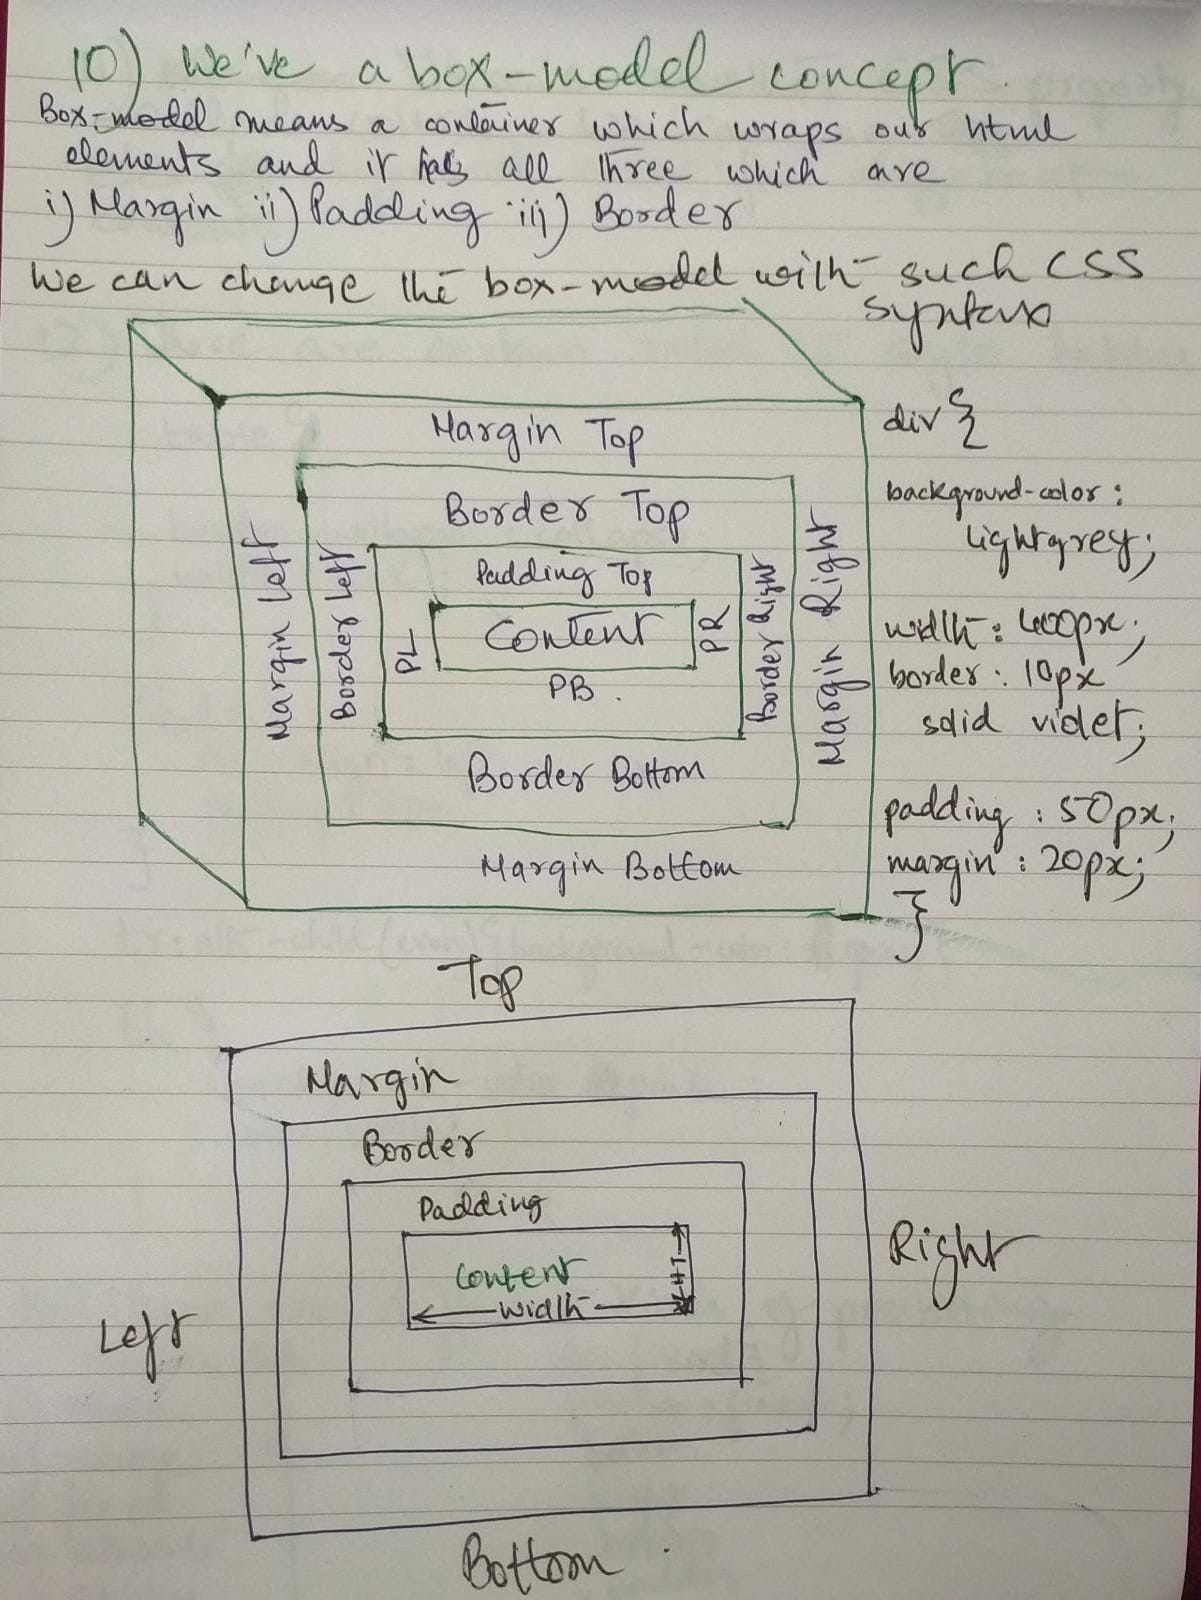 10) We've a box-model concept.
Box-model means a container which wraps our html
elements and it has all three which are
i) Margin ii) Padding iii) Border
We can change the box-model with such CSS
syntax
Margin Top
Border Top
Padding Top
Content
Margin Left
Border Left
PL
PR
Border Right
Margin Right
PB.
Border Bottom
Margin Bottom
div {
background-color:
lightgrey;
width: 400px;
border: 10px
solid violet;
padding: 50px;
margin: 20px;
}
Top
Margin
Border
Padding
Content
HT
Width
Left
Right
Bottom.